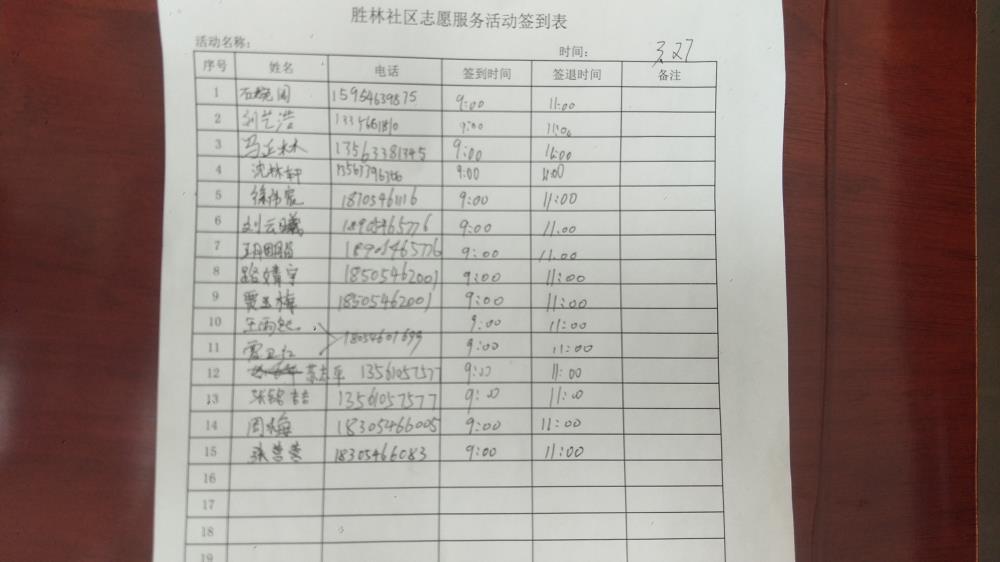 胜林社区志愿服务活动签到表
活动名称： 时间： 3.27
序号 姓名 电话 签到时间 签退时间 备注
1 15954639875 9:00 11:00
2 刘艺浩 9:00 11:00
3 马玉林 13563381345 9:00 11:00
4 沈林轩 9:00 11:00
5 徐伟宸 18705461116 9:00 11:00
6 刘云曦 18905465776 9:00 11:00
7 18905465776 9:00 11:00
8 路婧宇 18505462001 9:00 11:00
9 贾玉梅 18505462001 9:00 11:00
10 9:00 11:00
18054601699
11 9:00 11:00
12 13561057577 9:00 11:00
13 13561057577 9:00 11:00
14 周梅 18305466005 9:00 11:00
15 18305466083 9:00 11:00
16
17
18
19